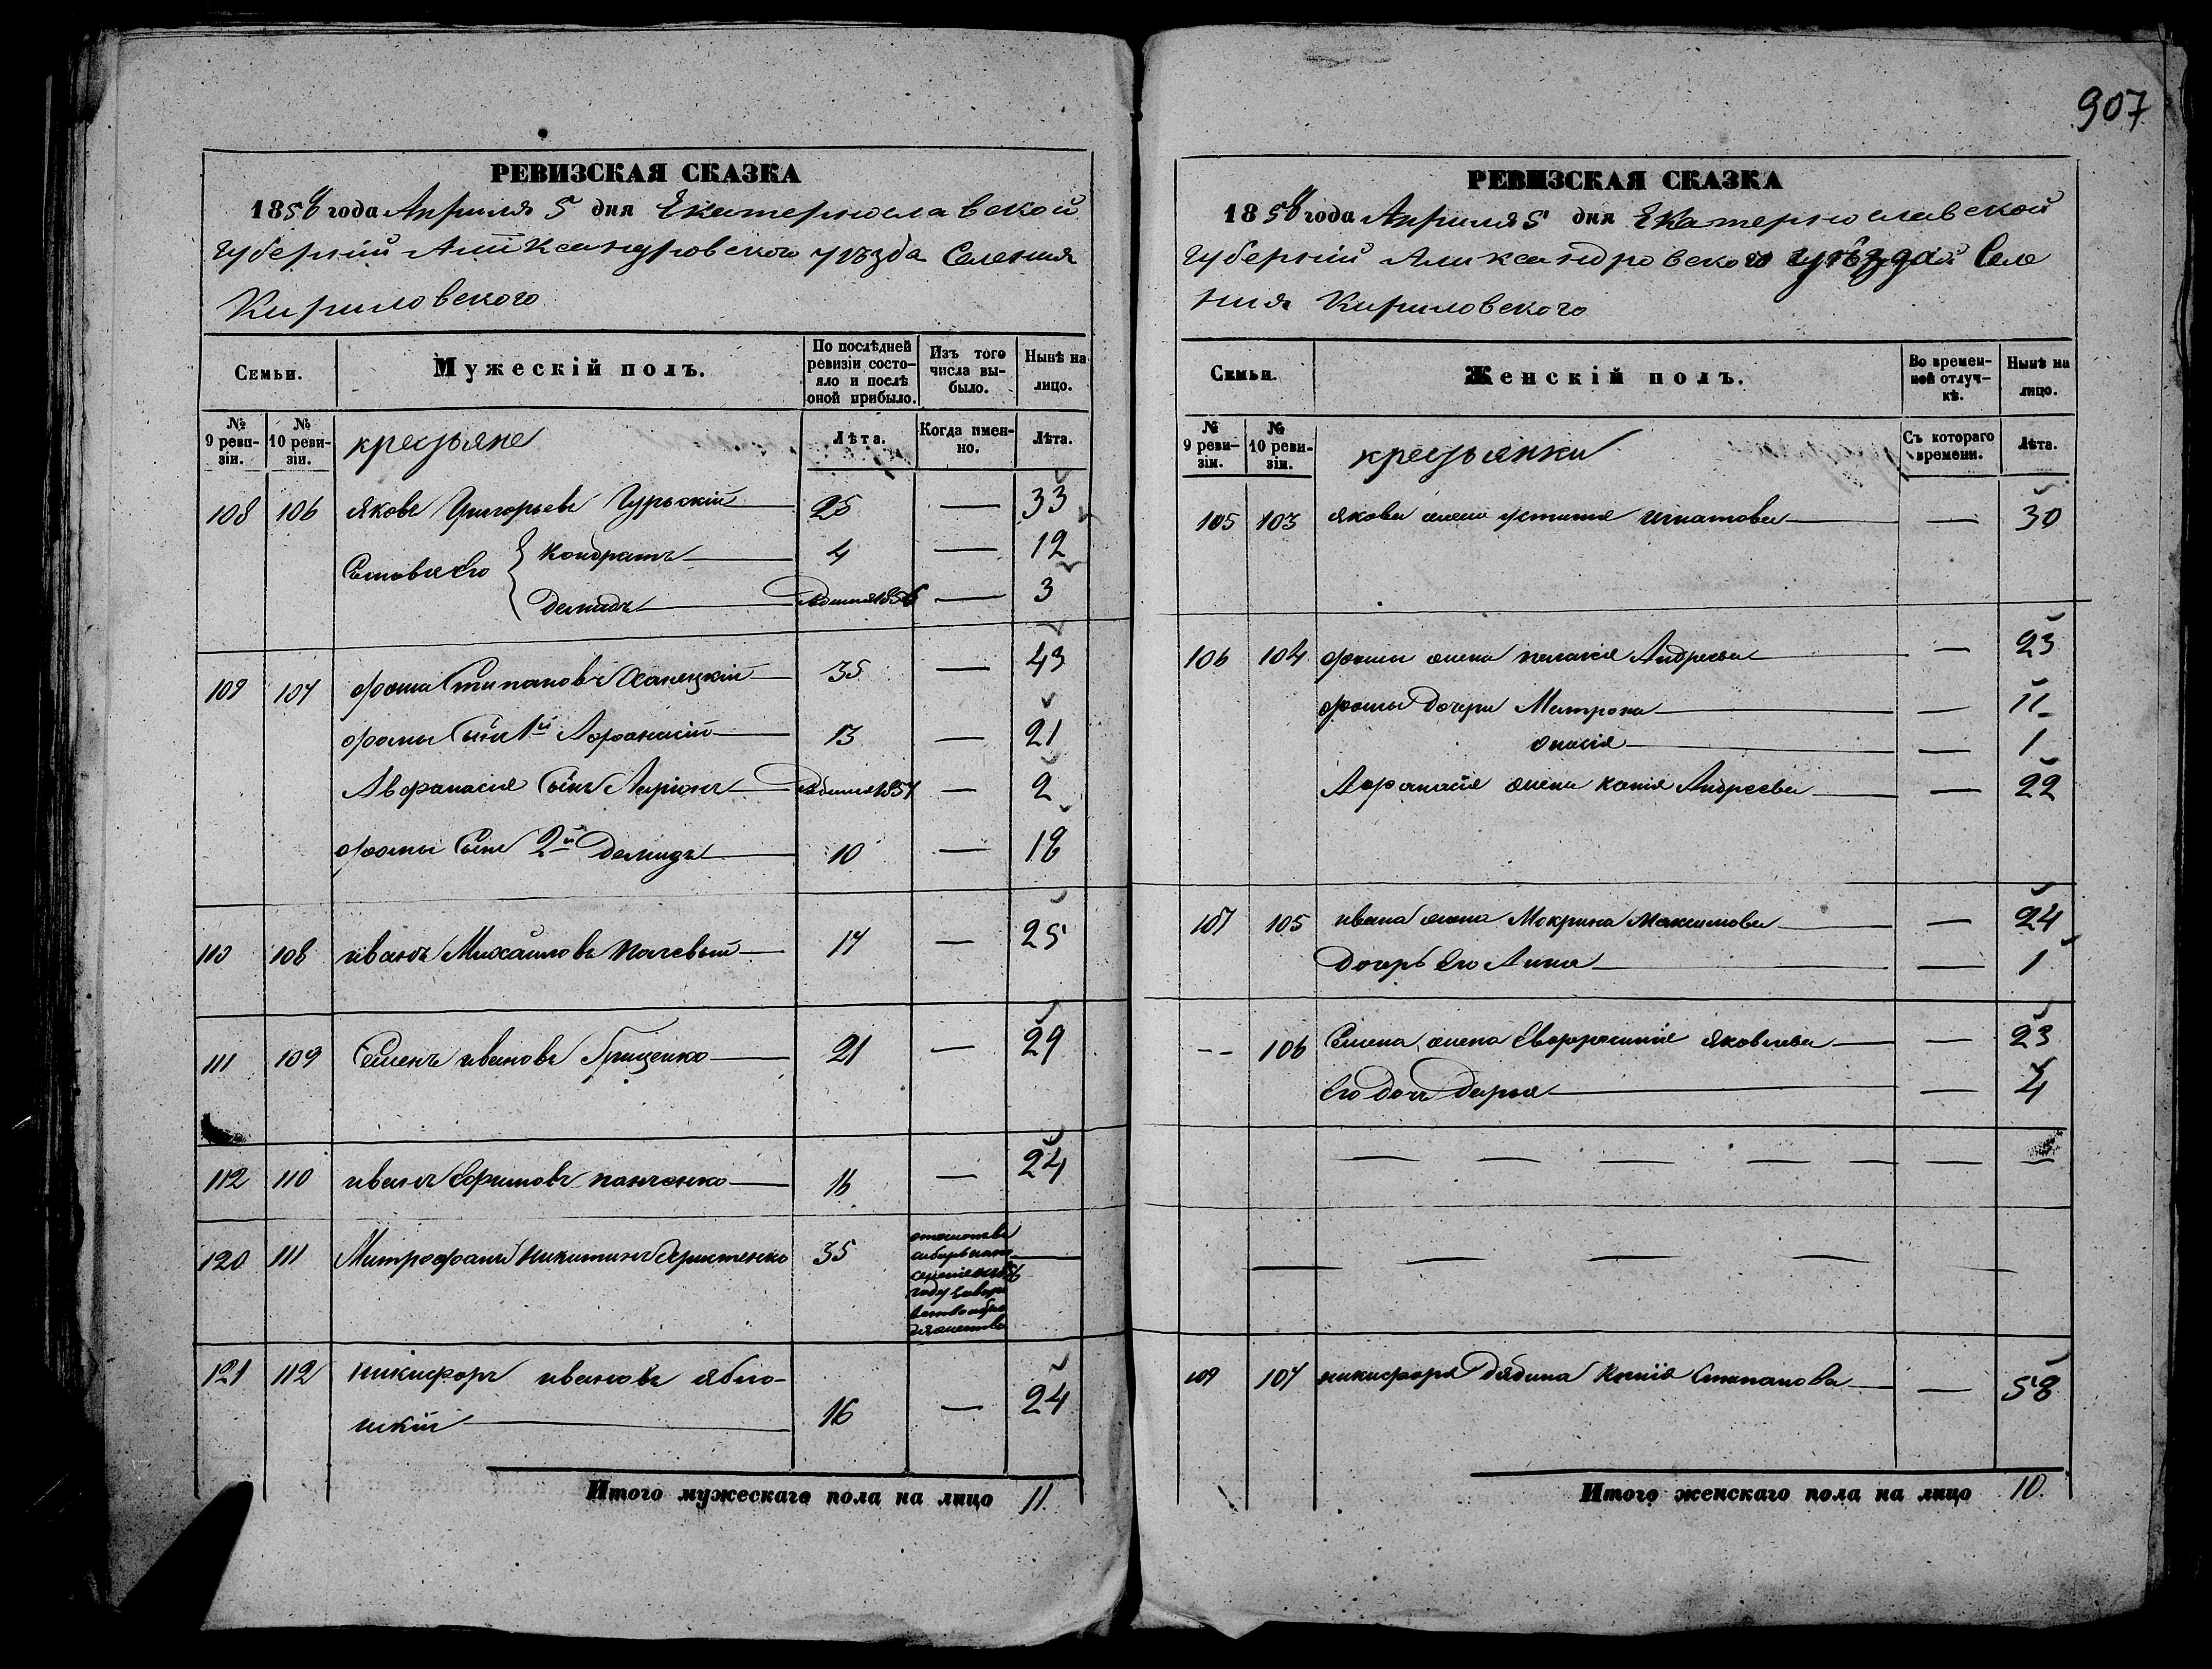 907
РЕВИЗСКАЯ СКАЗКА
1858 года Априля 5 дня Екатеринославской
губерніи Аликсандровского уѣзда Селения
Кириловского
Семьи. Мужескій полъ. По послѣдней ревизіи состояло и послѣ оной прибыло. Изъ того числа выбыло. Нынѣ на лицо.
№ 9 ревизіи. № 10 ревизіи. крестьяне Лѣта. Когда именно. Лѣта.
108 106 Яковъ Григорьевъ Гурьский 25 — 33
Сыновья его Кондратъ 4 — 12
Демидъ — 3
109 107 фома Стипановъ 35 — 43
фомы Сынъ 1й Афонасий 13 — 21
Авфанасия Сынъ Ларионъ — 2
фомы Сынъ 2й Демидъ 10 — 18
110 108 иванъ Михайловъ 17 — 25
111 109 Семенъ ивановъ Гриценко 21 — 29
112 110 иванъ Ефимовъ панченко 16 — 24
120 111 Митрофанъ Никитинъ 35
121 112 никифоръ ивановъ ябло-
нский 16 — 24
Итого мужескаго пола на лицо 11.
РЕВИЗСКАЯ СКАЗКА
1858 года Априля 5 дня Екатеринославской
губерніи Аликсандровского уѣзда Селе
ния Кириловского
Семьи. Женскій полъ. Во временной отлучкѣ. Нынѣ на лицо.
№ 9 ревизіи. № 10 ревизіи. крестьянки Съ котораго времени. Лѣта.
105 103 якова жена устинья игнатова — 30
106 104 фомы жена пелагия Андреева — 23
фомы Дочери Матрона — 11
— 1
Афанасия жена Андреева — 22
107 105 ивана жена Мокрина Максимова — 24
Дочерь его Анна — 1
-- 106 Семена жена Евфросиния Яковлева — 23
Его Дочь Дарья — 4
— — — — — — —
— — — —
109 107 никифора Дядина Стипанова — 58
Итого женскаго пола на лицо 10.